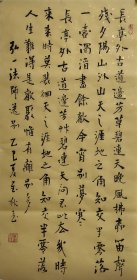 長亭外古道邊芳草碧連天晚風拂柳笛聲
殘夕陽山外山天之涯地之角知交半零落
一壺濁酒盡餘歡今宵別夢寒
長亭外古道邊芳草碧連天問君此去幾時
來來時莫徘徊天之涯地之角知交半零落
人生難得是歡聚惟有別離多
弘一法師送別